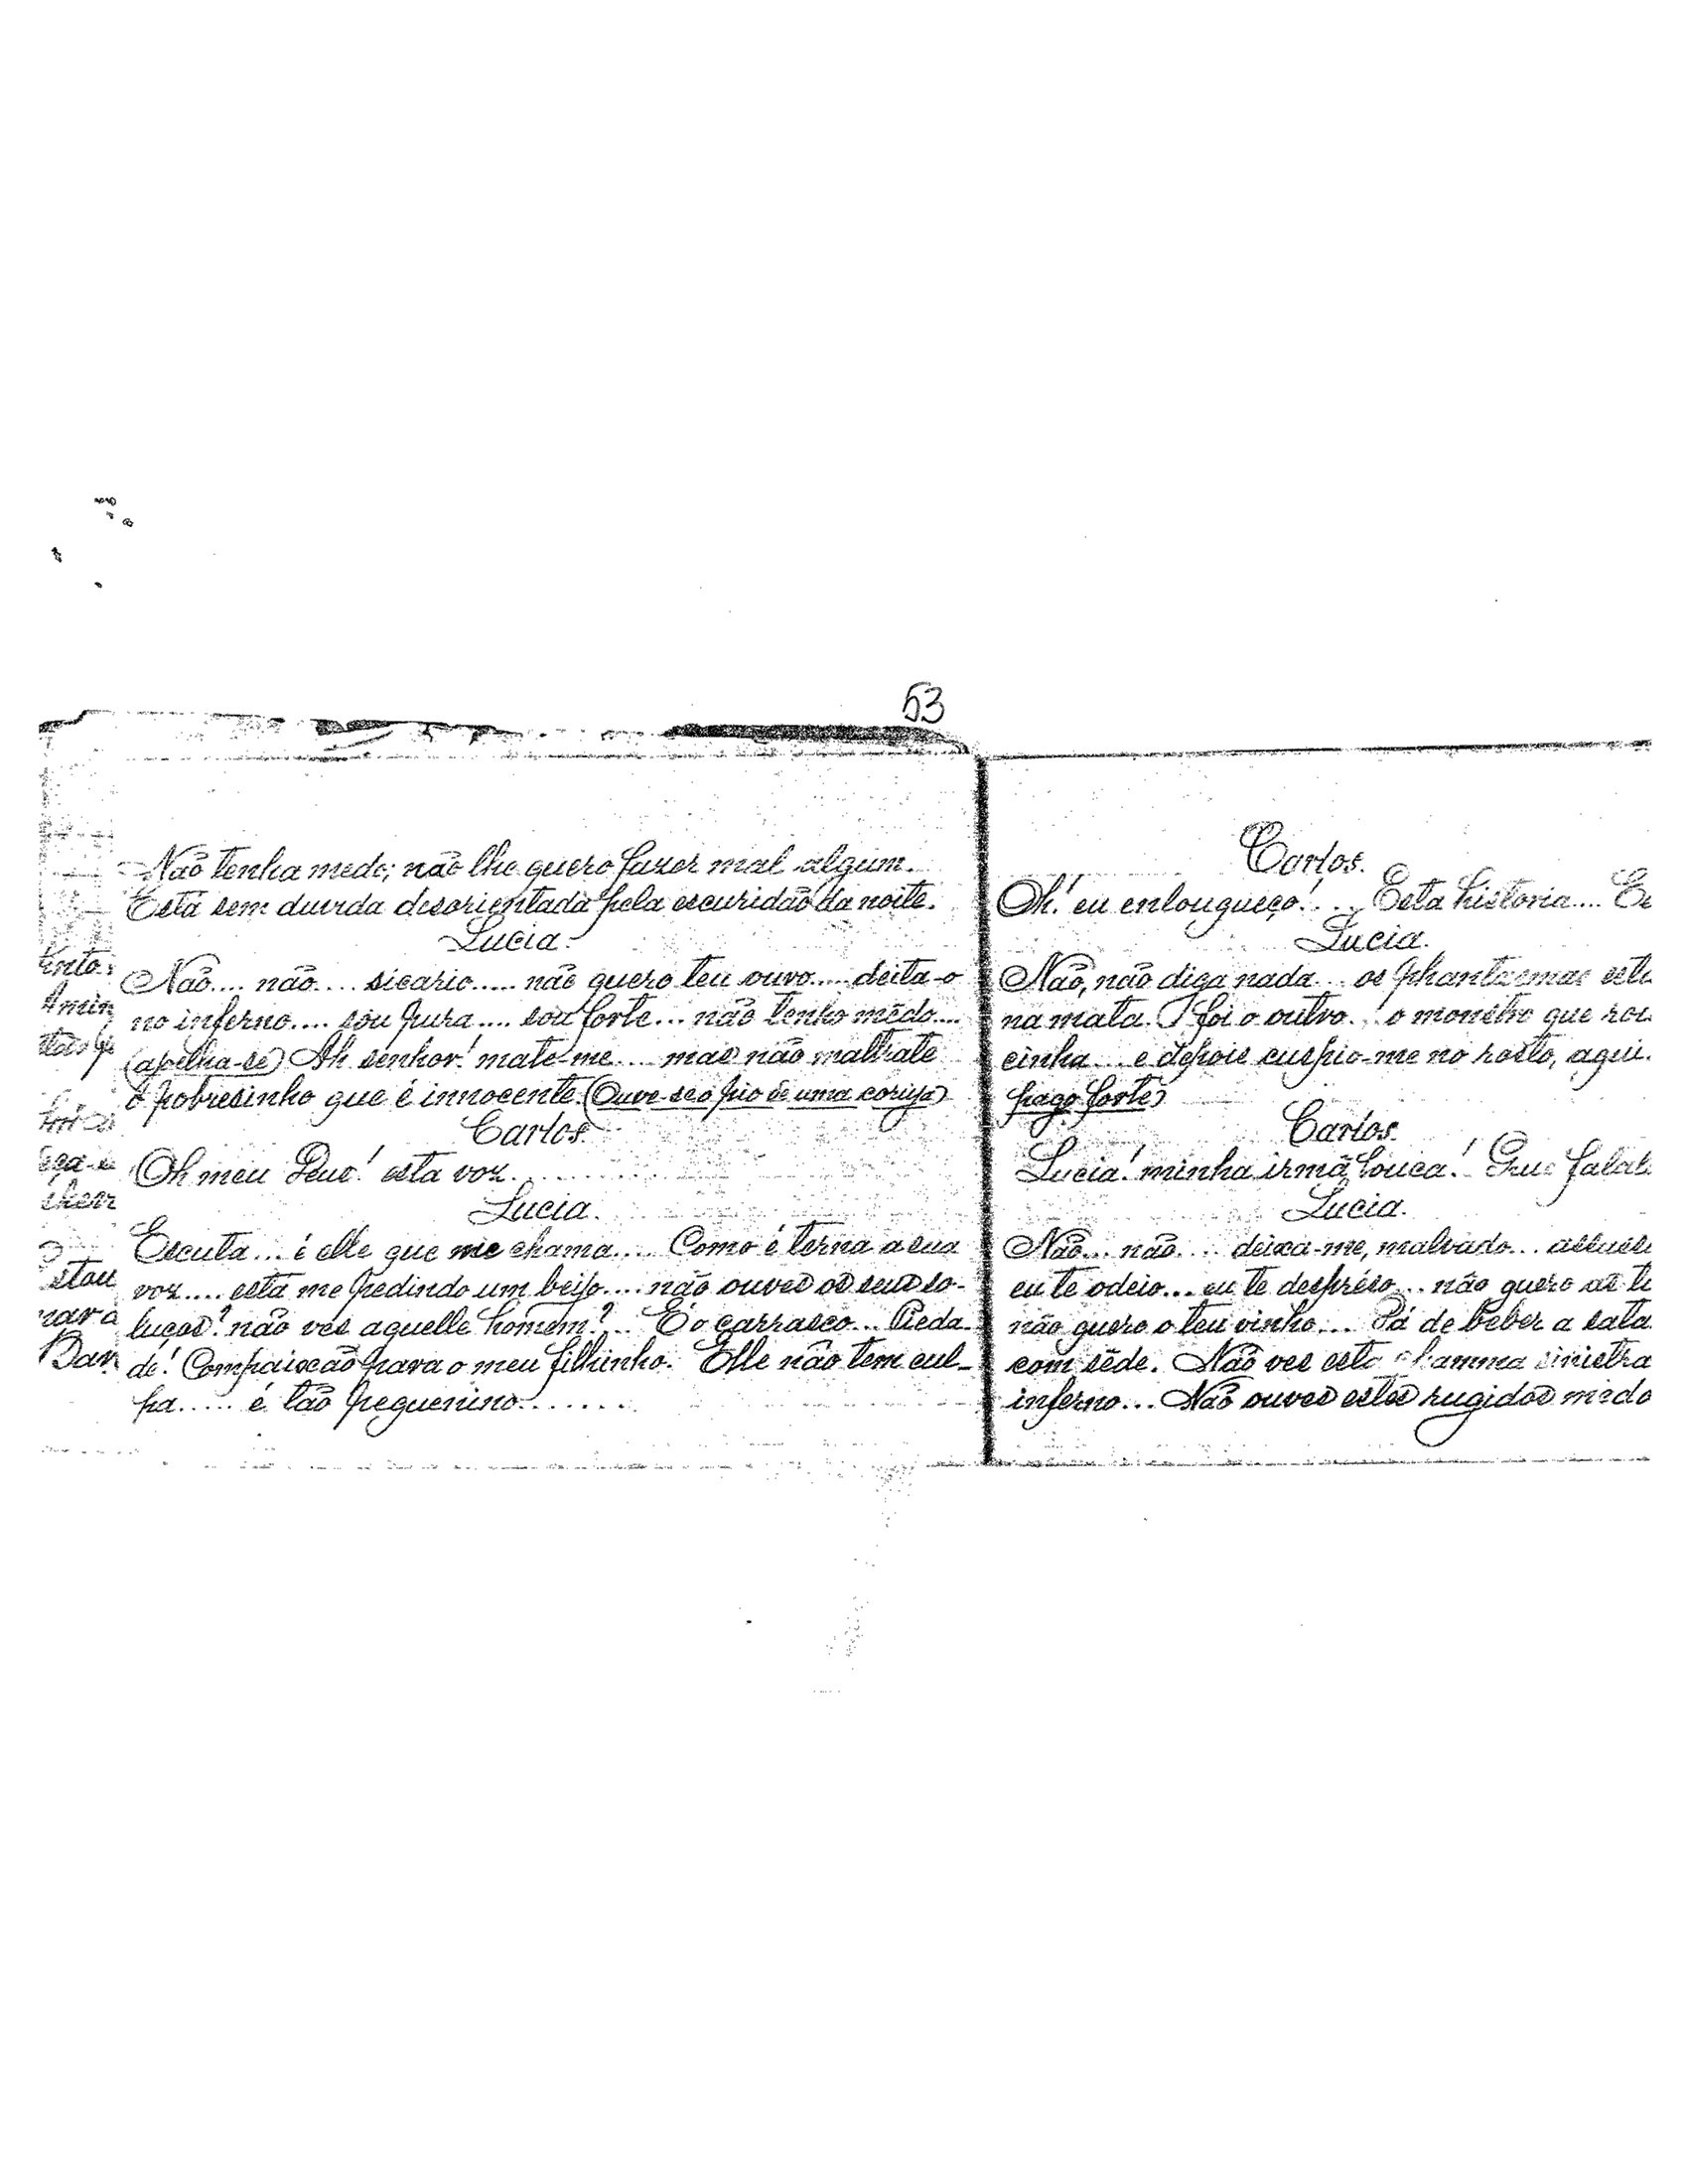 53
Não tenha medo; não lhe quero fazer mal algum.
Está sem duvida desorientada pela escuridão da noite.
Lucia.
Não.... não.... sicario..... não quero teu ouro..... deita-o
no inferno.... sou pura.... sou forte... não tenho mêdo....
(ajoelha-se) Ah senhor! mate-me.... mas não maltrate
o pobresinho que é innocente. (Ouve-se o pio de uma coruja)
Carlos.
Oh meu Deus! esta voz.............
Lucia.
Escuta... é elle que me chama.... Como é terna a sua
voz.... está me pedindo um beijo.... não ouves os seus so-
luços? não vês aquelle homem?.. É o carrasco... Pieda-
de! Compaixão para o meu filhinho. Elle não tem cul-
pa..... é tão pequenino.......
Carlos.
Oh! eu enlouqueço!.... Esta historia....
Lucia.
Não, não diga nada... os phantasmas
na mata. foi o outro..! o monstro que
cinha.... e depois cuspio-me no rosto, aqui.
pago forte)
Carlos.
Lucia! minha irmã louca! Que
Lucia.
Não... não.... deixa-me, malvado...
eu te odeio... eu te desprêso... não quero as
não quero o teu vinho... Dá de beber a
com sêde. Não ves esta chamma sinistra
inferno... Não ouves estes rugidos
tinto.
stou
nar a